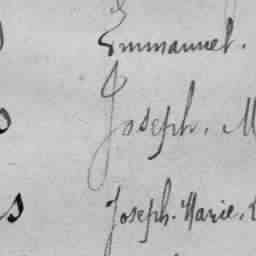 Emmanuel.
Joseph. M
s Joseph. Marie.